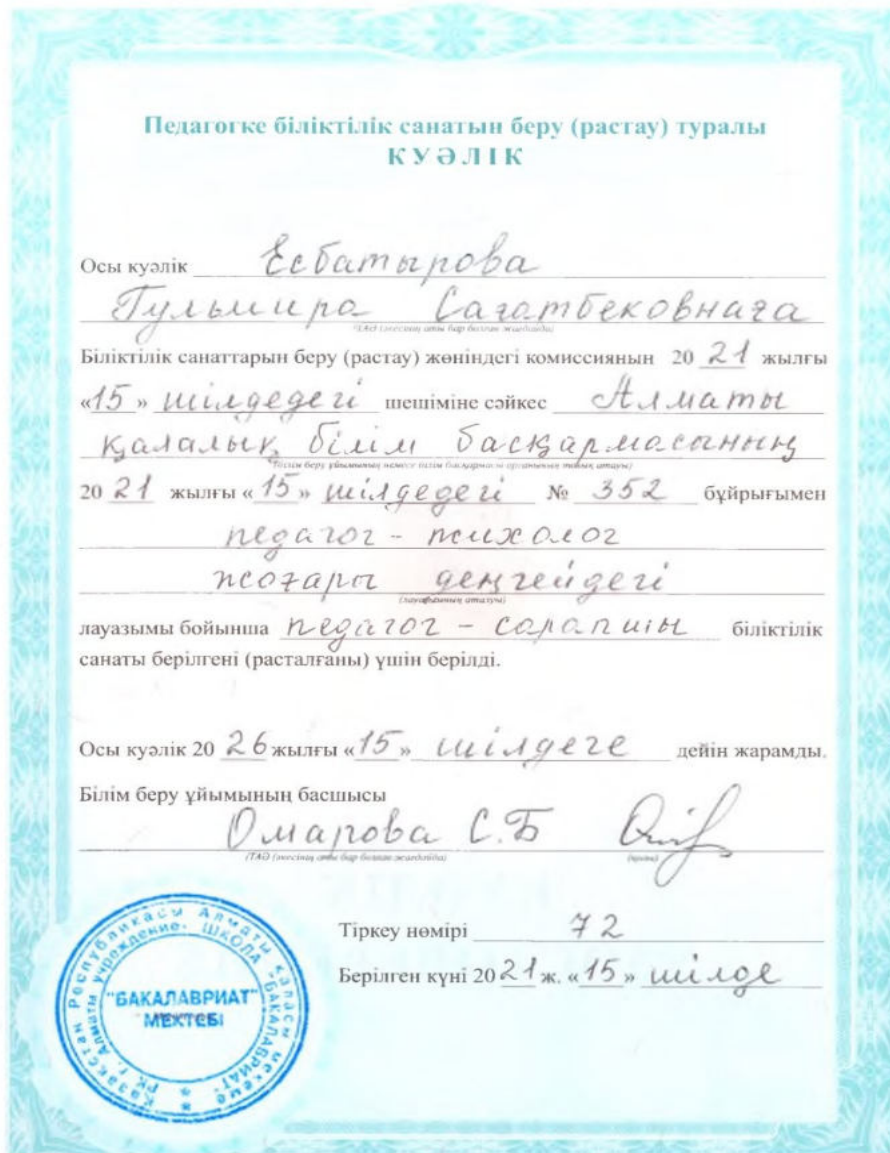 Педагогке біліктілік санатын беру (растау) туралы
КУӘЛІК
Осы куәлік Есбатырова
Гульмира Сагатбековнаға
(ТАӘ (әкесінің аты бар болған жағдайда)
Біліктілік санаттарын беру (растау) жөніндегі комиссиянын 20 21 жылғы
«15» шілдедегі шешіміне сәйкес Алматы
қалалық білім басқармасының
(білім беру ұйымының немесе білім басқармасы органының толық атауы)
20 21 жылғы «15» шілдедегі № 352 бұйрығымен
педагог - психолог
жоғары деңгейдегі
(лауазымының аталуы)
лауазымы бойынша педагог - сарапшы біліктілік
санаты берілгені (расталғаны) үшін берілді.
Осы куәлік 20 26 жылғы «15» шілдеге дейін жарамды.
Білім беру ұйымының басшысы
Омарова С.Б
(ТАӘ (әкесінің аты бар болған жағдайда) (қолы)
Тіркеу нөмірі 72
Берілген күні 20 21 ж. «15» шілде
Қазақстан Республикасы Алматы қаласы мекеме
РК г. Алматы учреждение ШКОЛА "БАКАЛАВРИАТ"
"БАКАЛАВРИАТ"
МЕКТЕБІ